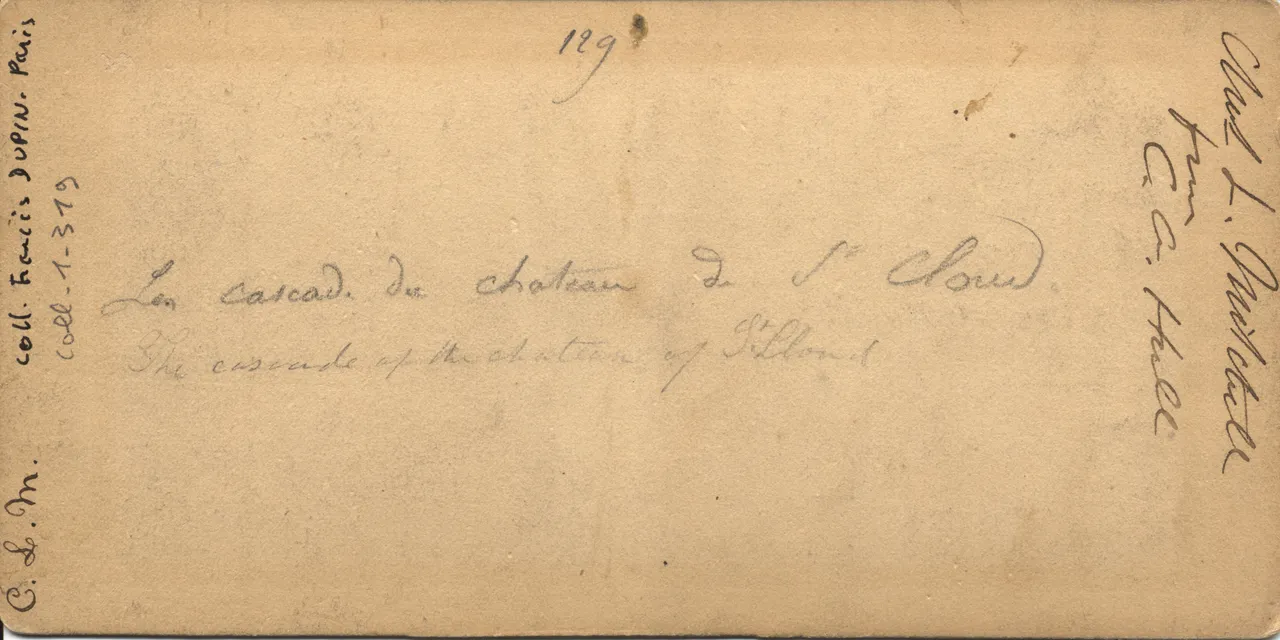 129
Les cascad. du chateau de St Cloud.
The cascade of the chateau of St Cloud
coll. Francis DUPIN. Paris
coll-1-319
C. L. M.
Chas L. Mitchell
from
C. A. Hull